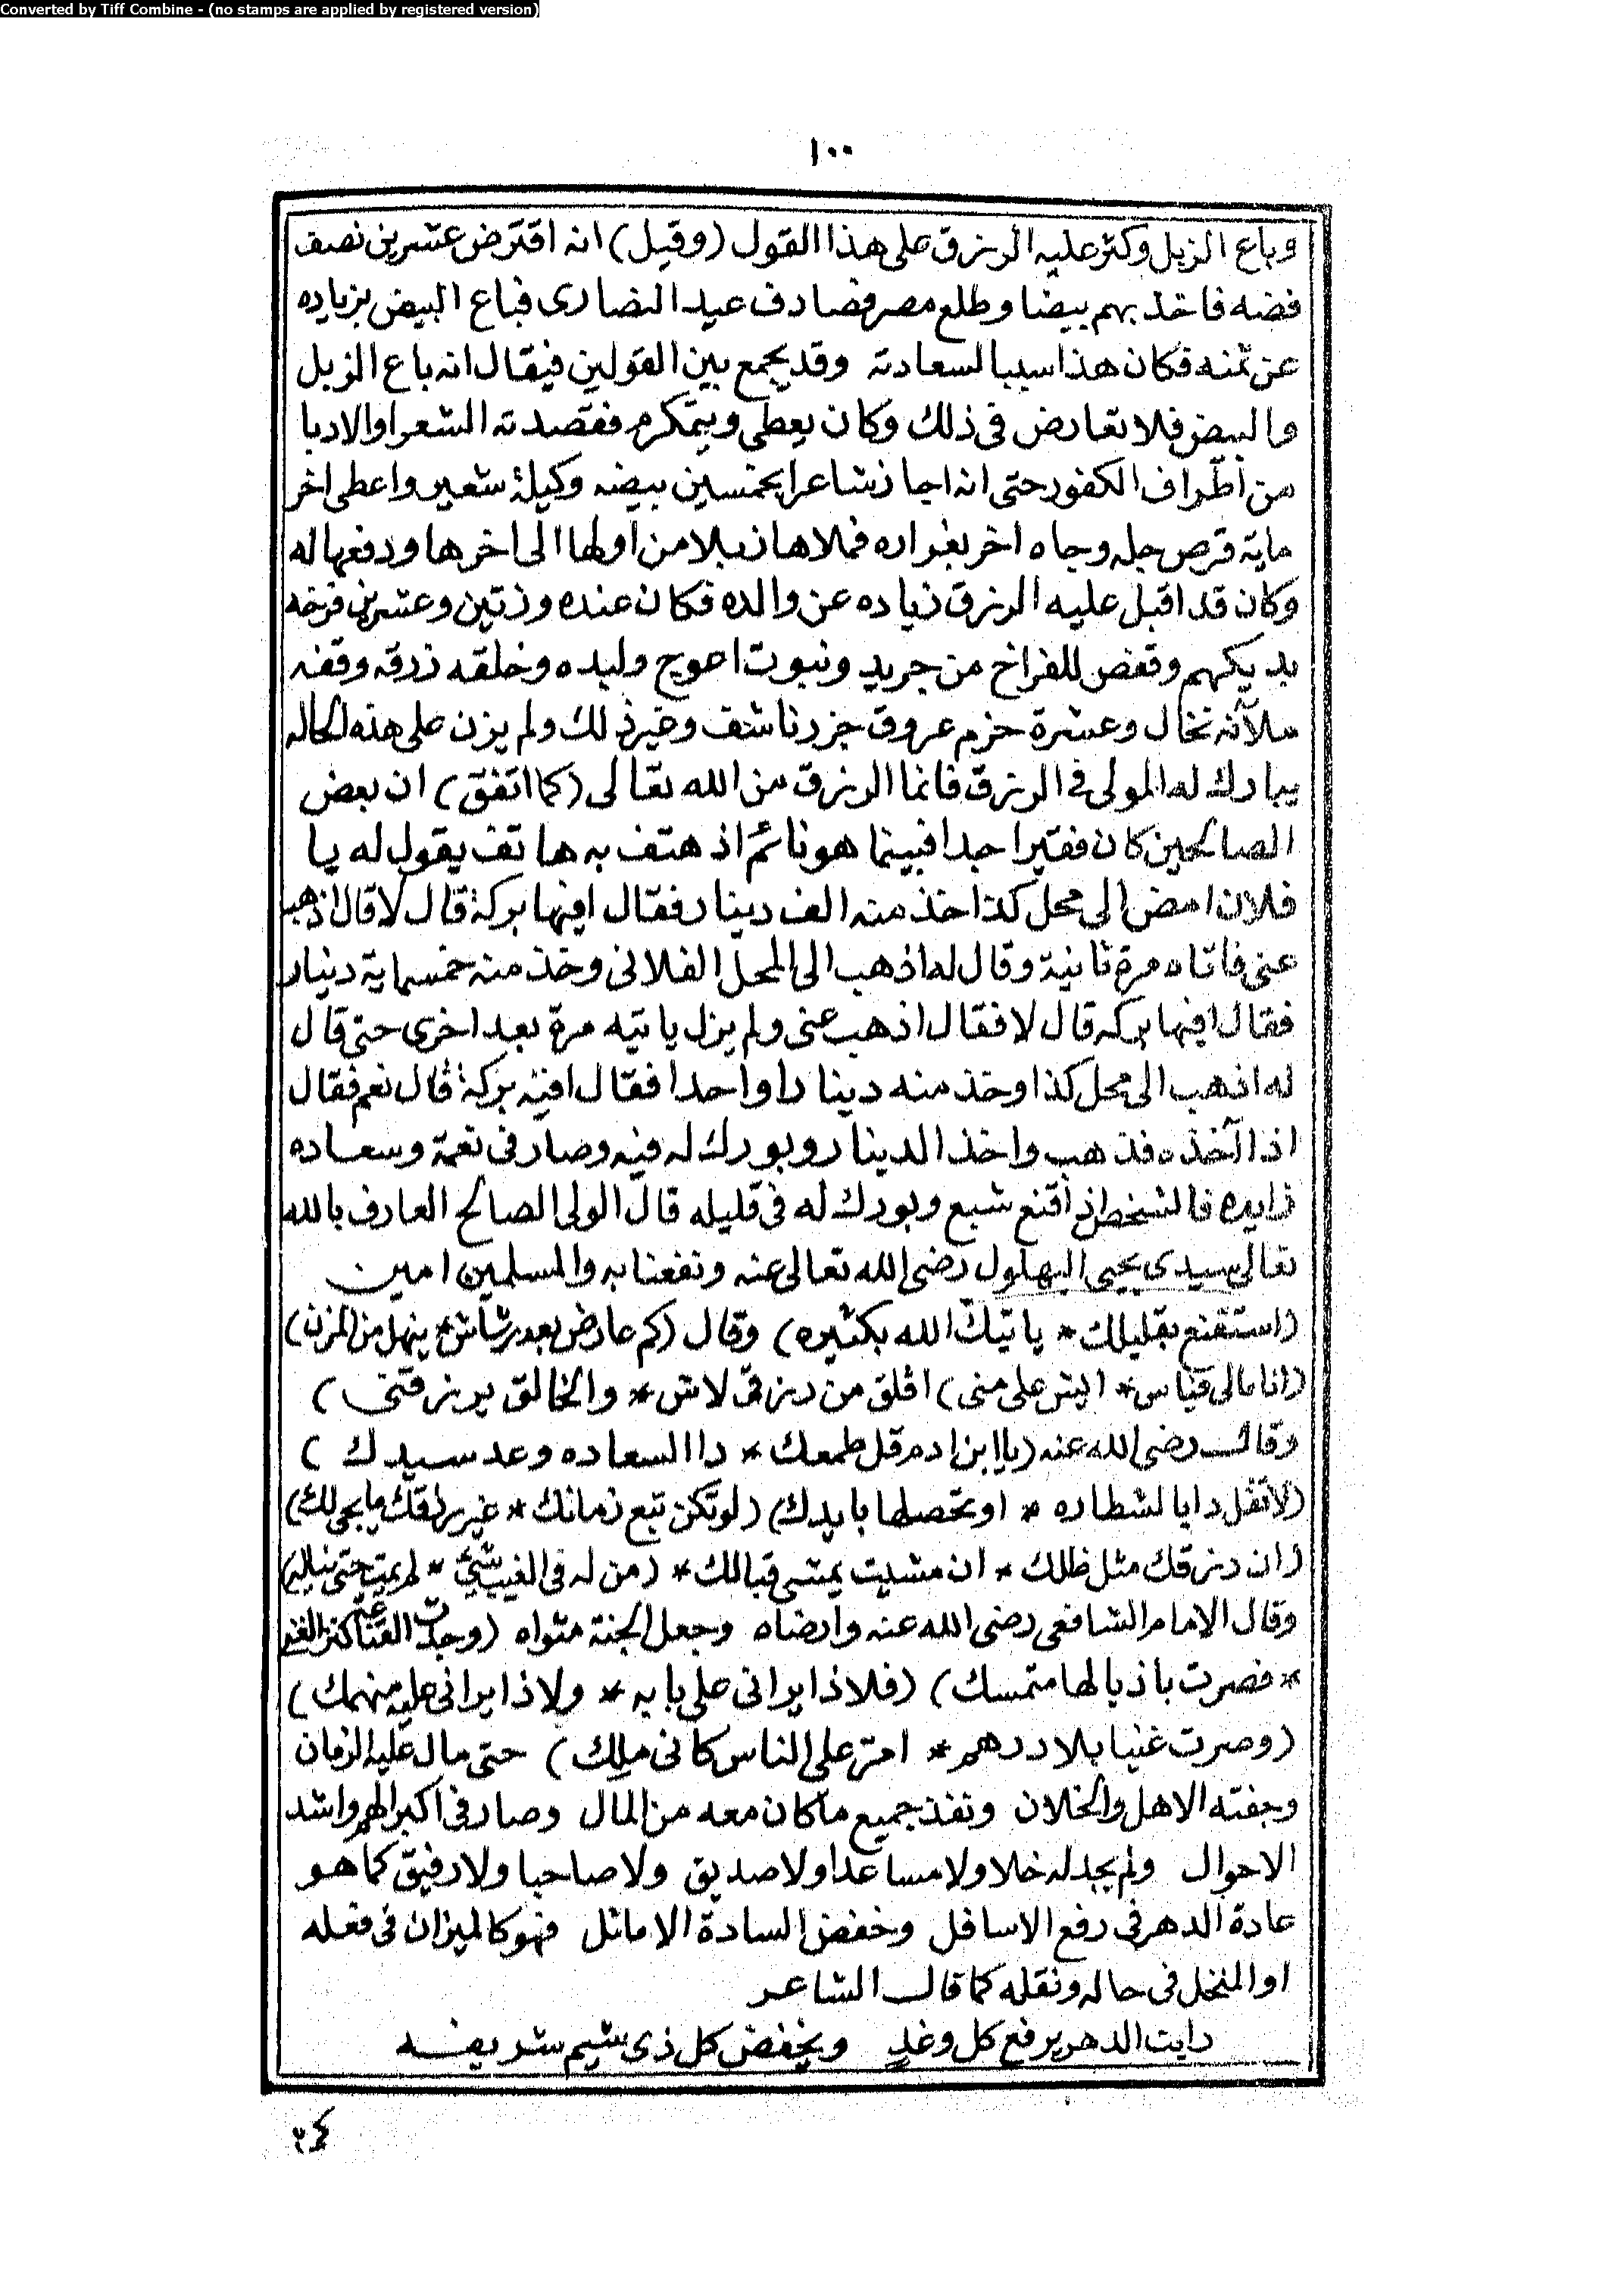 Converted by Tiff Combine - (no stamps are applied by registered version)
١٠٠
وباع الزبل وكثر عليه الرزق على هذا القول (وقيل) انه اقترض عشرين نصف
فضه فاخذ بهم بيضا وطلع مصر فصادف عيد النصارى فباع البيض بزياده
عن ثمنه فكان هذا سببا لسعادته وقد يجمع بين القولين فيقال انه باع الزبل
والبيض فلا تعارض فى ذلك وكان يعطى ويتكرم فقصدته الشعرا والادبا
من اطراف الكفور حتى انه اجاز شاعرا بخمسين بيضه وكيلة شعير واعطى اخر
ماية قرص جله وجاه اخر بغراره فملاها زبلا من اولها الى اخرها ودفعها له
وكان قد اقبل عليه الرزق زياده عن والده فكان عنده وزتين وعشرين فرخه
بديكهم وقفص للفراخ من جريد ونبوت اعوج ولبده وخلقه زرقه وقفه
ملآنه نخال وعشرة حزم عروق جزر ناشف وغير ذلك ولم يزن على هذه الحاله
يبارك له المولى فى الرزق فانما الرزق من الله تعالى (كما اتفق) ان بعض
الصالحين كان فقيرا جدا فبينما هو نائم اذ هتف به هاتف يقول له يا
فلان امض الى محل كذا خذ منه الف دينار فقال افيها بركة قال لا قال اذهب
عنى فاتاه مرة ثانية وقال له اذهب الى المحل الفلانى وخذ منه خمسماية دينار
فقال افيها بركه قال لا فقال اذهب عنى ولم يزل ياتيه مرة بعد اخرى حتى قال
له اذهب الى محل كذا وخذ منه دينارا واحدا فقال افيه بركة قال نعم فقال
اذا آخذه فذهب واخذ الدينار وبورك له فيه وصار فى نعمة وسعاده
زايده فالشخص اذا قنع شبع وبورك له فى قليله قال الولى الصالح العارف بالله
تعالى سيدى يحيى البهلول رضى الله تعالى عنه ونفعنا به والمسلمين امين
(استقنع بقليلك * ياتيك الله بكثيره) وقال (كم عارض بعد رشاش * ينهل من المزن)
(انا مالى قياس * ايش على منى) اقلق من رزق لاش * والخالق يرزقنى)
وقال رضى الله عنه (يا ابن ادم قل طمعك * دا السعاده وعد سيدك)
(لا تقل دا يا لشطاره * او تحصلها بايدك) (لو تكن تبع زمانك * غير رزقك ما يجى لك)
(ان رزقك مثل ظلك * ان مشيت يمشى قبالك * (من له فى الغيب شئ * لم يمت حتى يناله)
وقال الامام الشافعى رضى الله عنه وارضاه وجعل الجنة مثواه (وجدت القناعة كنز الغنى
* فصرت باذيالها متمسك) (فلا ذا يرانى على بابه * ولا ذا يرانى عليه منهمك)
(وصرت غنيا بلا درهم * امر على الناس كانى ملك) حتى مال عليه الزمان
وجفته الاهل والخلان ونفذ جميع ما كان معه من المال وصار فى اكبر الهم واشد
الاحوال ولم يجد له خلا ولا مساعدا ولا صديق ولا صاحبا ولا رفيق كما هو
عادة الدهر فى رفع الاسافل وخفض السادة الاماثل فهو كالميزان فى فعله
او المنخل فى حاله ونقله كما قال الشاعر
رايت الدهر يرفع كل وغد ويخفض كل ذى شيم شريفه